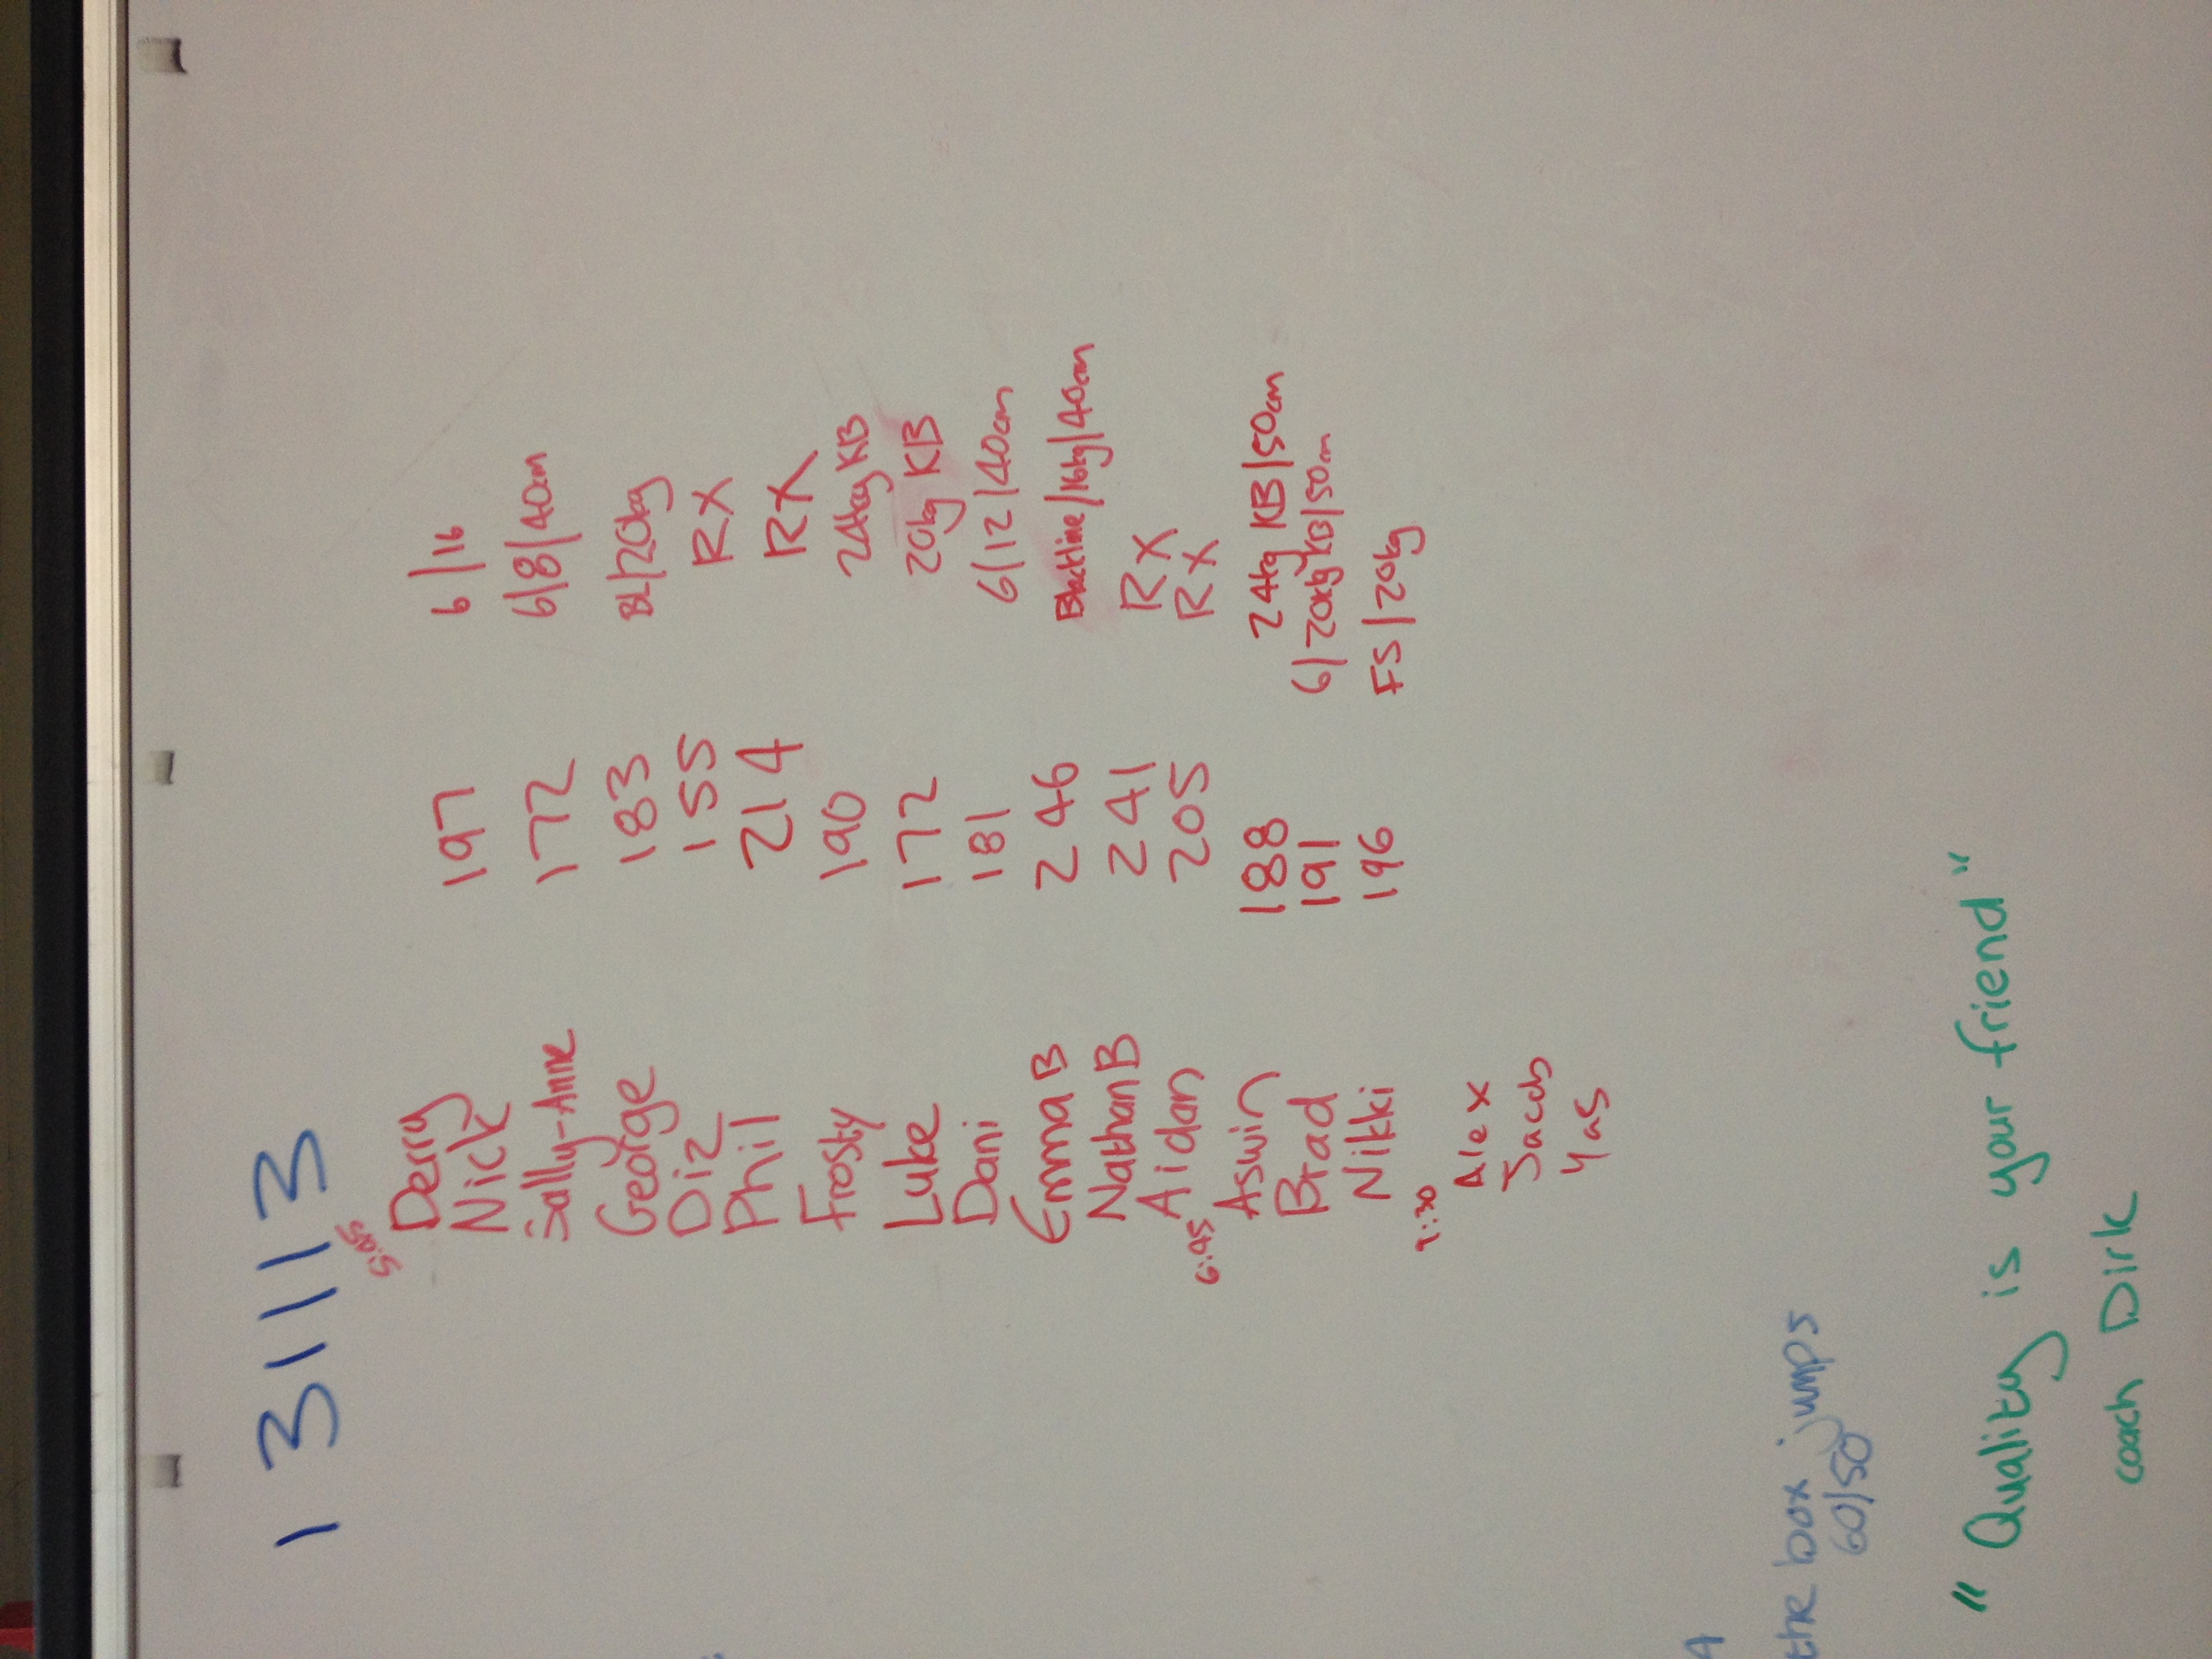 131113
5:45
Derry
Nick 197 6/16
Sally-Anne 172 6/8/40cm
George 183 BL/20kg
Oiz 155 RX
Phil 214 RX
Frosty 190 24kg KB
Luke 172 20kg KB
Dani 181 6/12/40cm
Emma B 246 Blackline/16kg/40cm
Nathan B 241 RX
Aidan 205 RX
6:45
Aswin 188 24kg KB/50cm
Brad 191 6/20kg KB/50cm
Nikki 196 FS/20kg
9:30
Alex
Jacob
Yas
the box jumps
60/50
"Quality is your friend"
coach Dirk